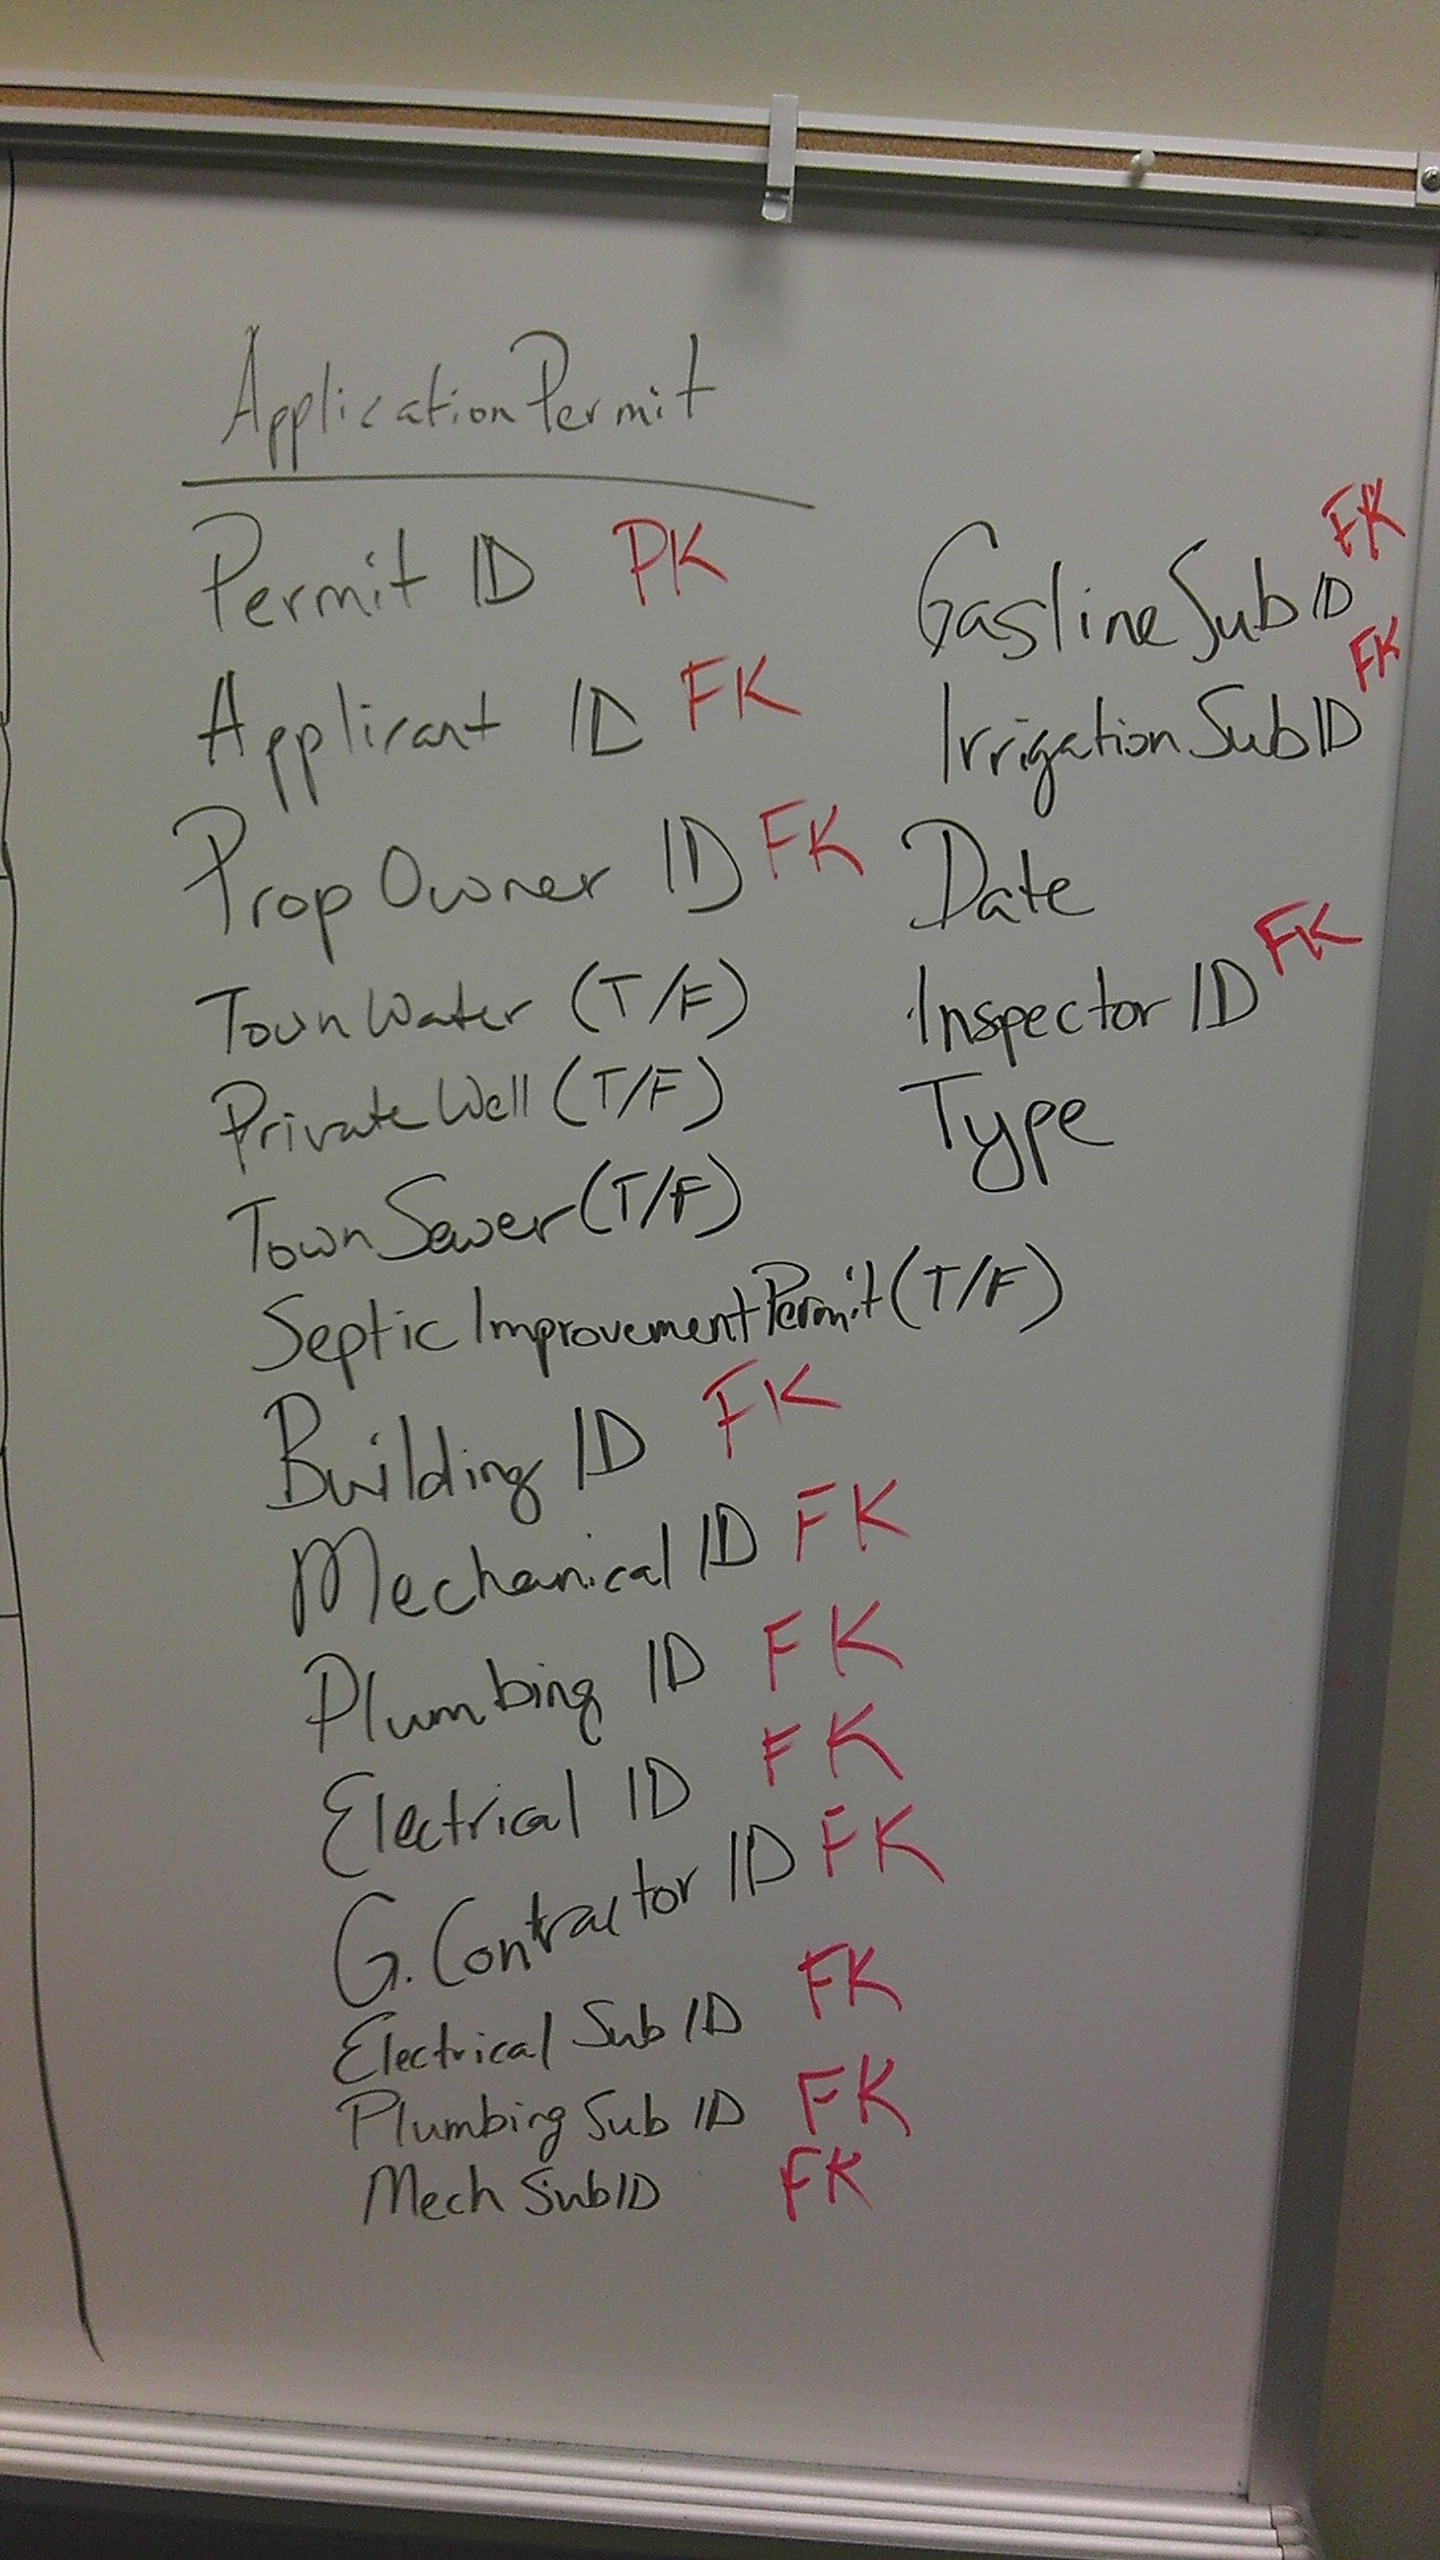 ApplicationPermit
Permit ID PK
Applicant ID FK
PropOwner ID FK
TownWater (T/F)
PrivateWell (T/F)
TownSewer (T/F)
SepticImprovementPermit (T/F)
Building ID FK
Mechanical ID FK
Plumbing ID FK
Electrical ID FK
G. Contractor ID FK
Electrical Sub ID FK
Plumbing Sub ID FK
Mech SubID FK
GaslineSub ID FK
IrrigationSubID FK
Date
Inspector ID FK
Type